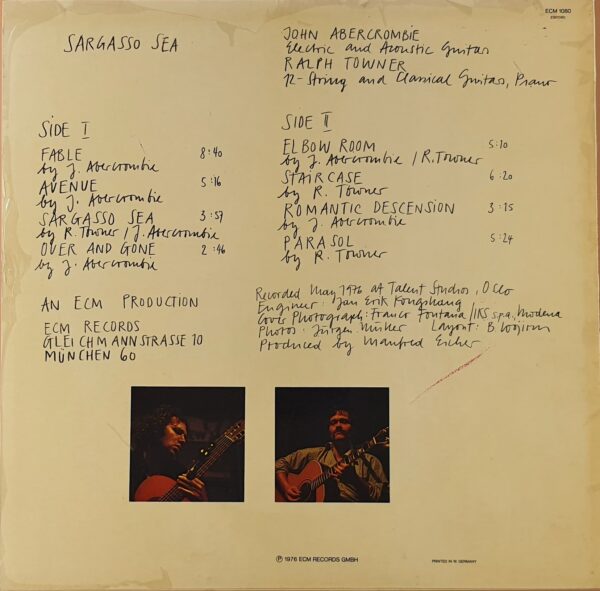 SARGASSO SEA
ECM 1080
JOHN ABERCROMBIE
Electric and Acoustic Guitars
RALPH TOWNER
12-String and Classical Guitars, Piano
SIDE I
FABLE 8:40
by J. Abercrombie
AVENUE 5:16
by J. Abercrombie
SARGASSO SEA 3:57
by R. Towner / J. Abercrombie
OVER AND GONE 2:46
by J. Abercrombie
SIDE II
ELBOW ROOM 5:10
by J. Abercrombie / R. Towner
STAIRCASE 6:20
by R. Towner
ROMANTIC DESCENSION 3:15
by J. Abercrombie
PARASOL 5:24
by R. Towner
AN ECM PRODUCTION
ECM RECORDS
GLEICHMANNSTRASSE 10
MÜNCHEN 60
Recorded May 1976 at Talent Studios, Oslo
Engineer: Jan Erik Kongshaug
Cover Photograph: Franco Fontana / IKS s.p.a., Modena
Photos: Layout: B Wojirsch
Produced by Manfred Eicher
℗ 1976 ECM RECORDS GMBH
PRINTED IN W. GERMANY